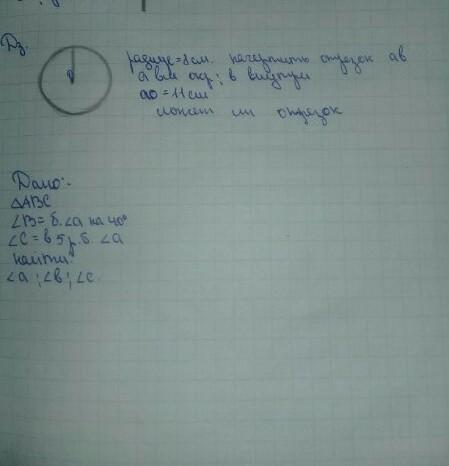 Дз.
радиус=8см. начертить отрезок ав
а вне окр; в внутри
ао=11см
может ли отрезок
Дано:
△ABC
∠B=б.∠а на 40°
∠C=в 5 р.б. ∠а
найти:
∠а;∠в;∠с.